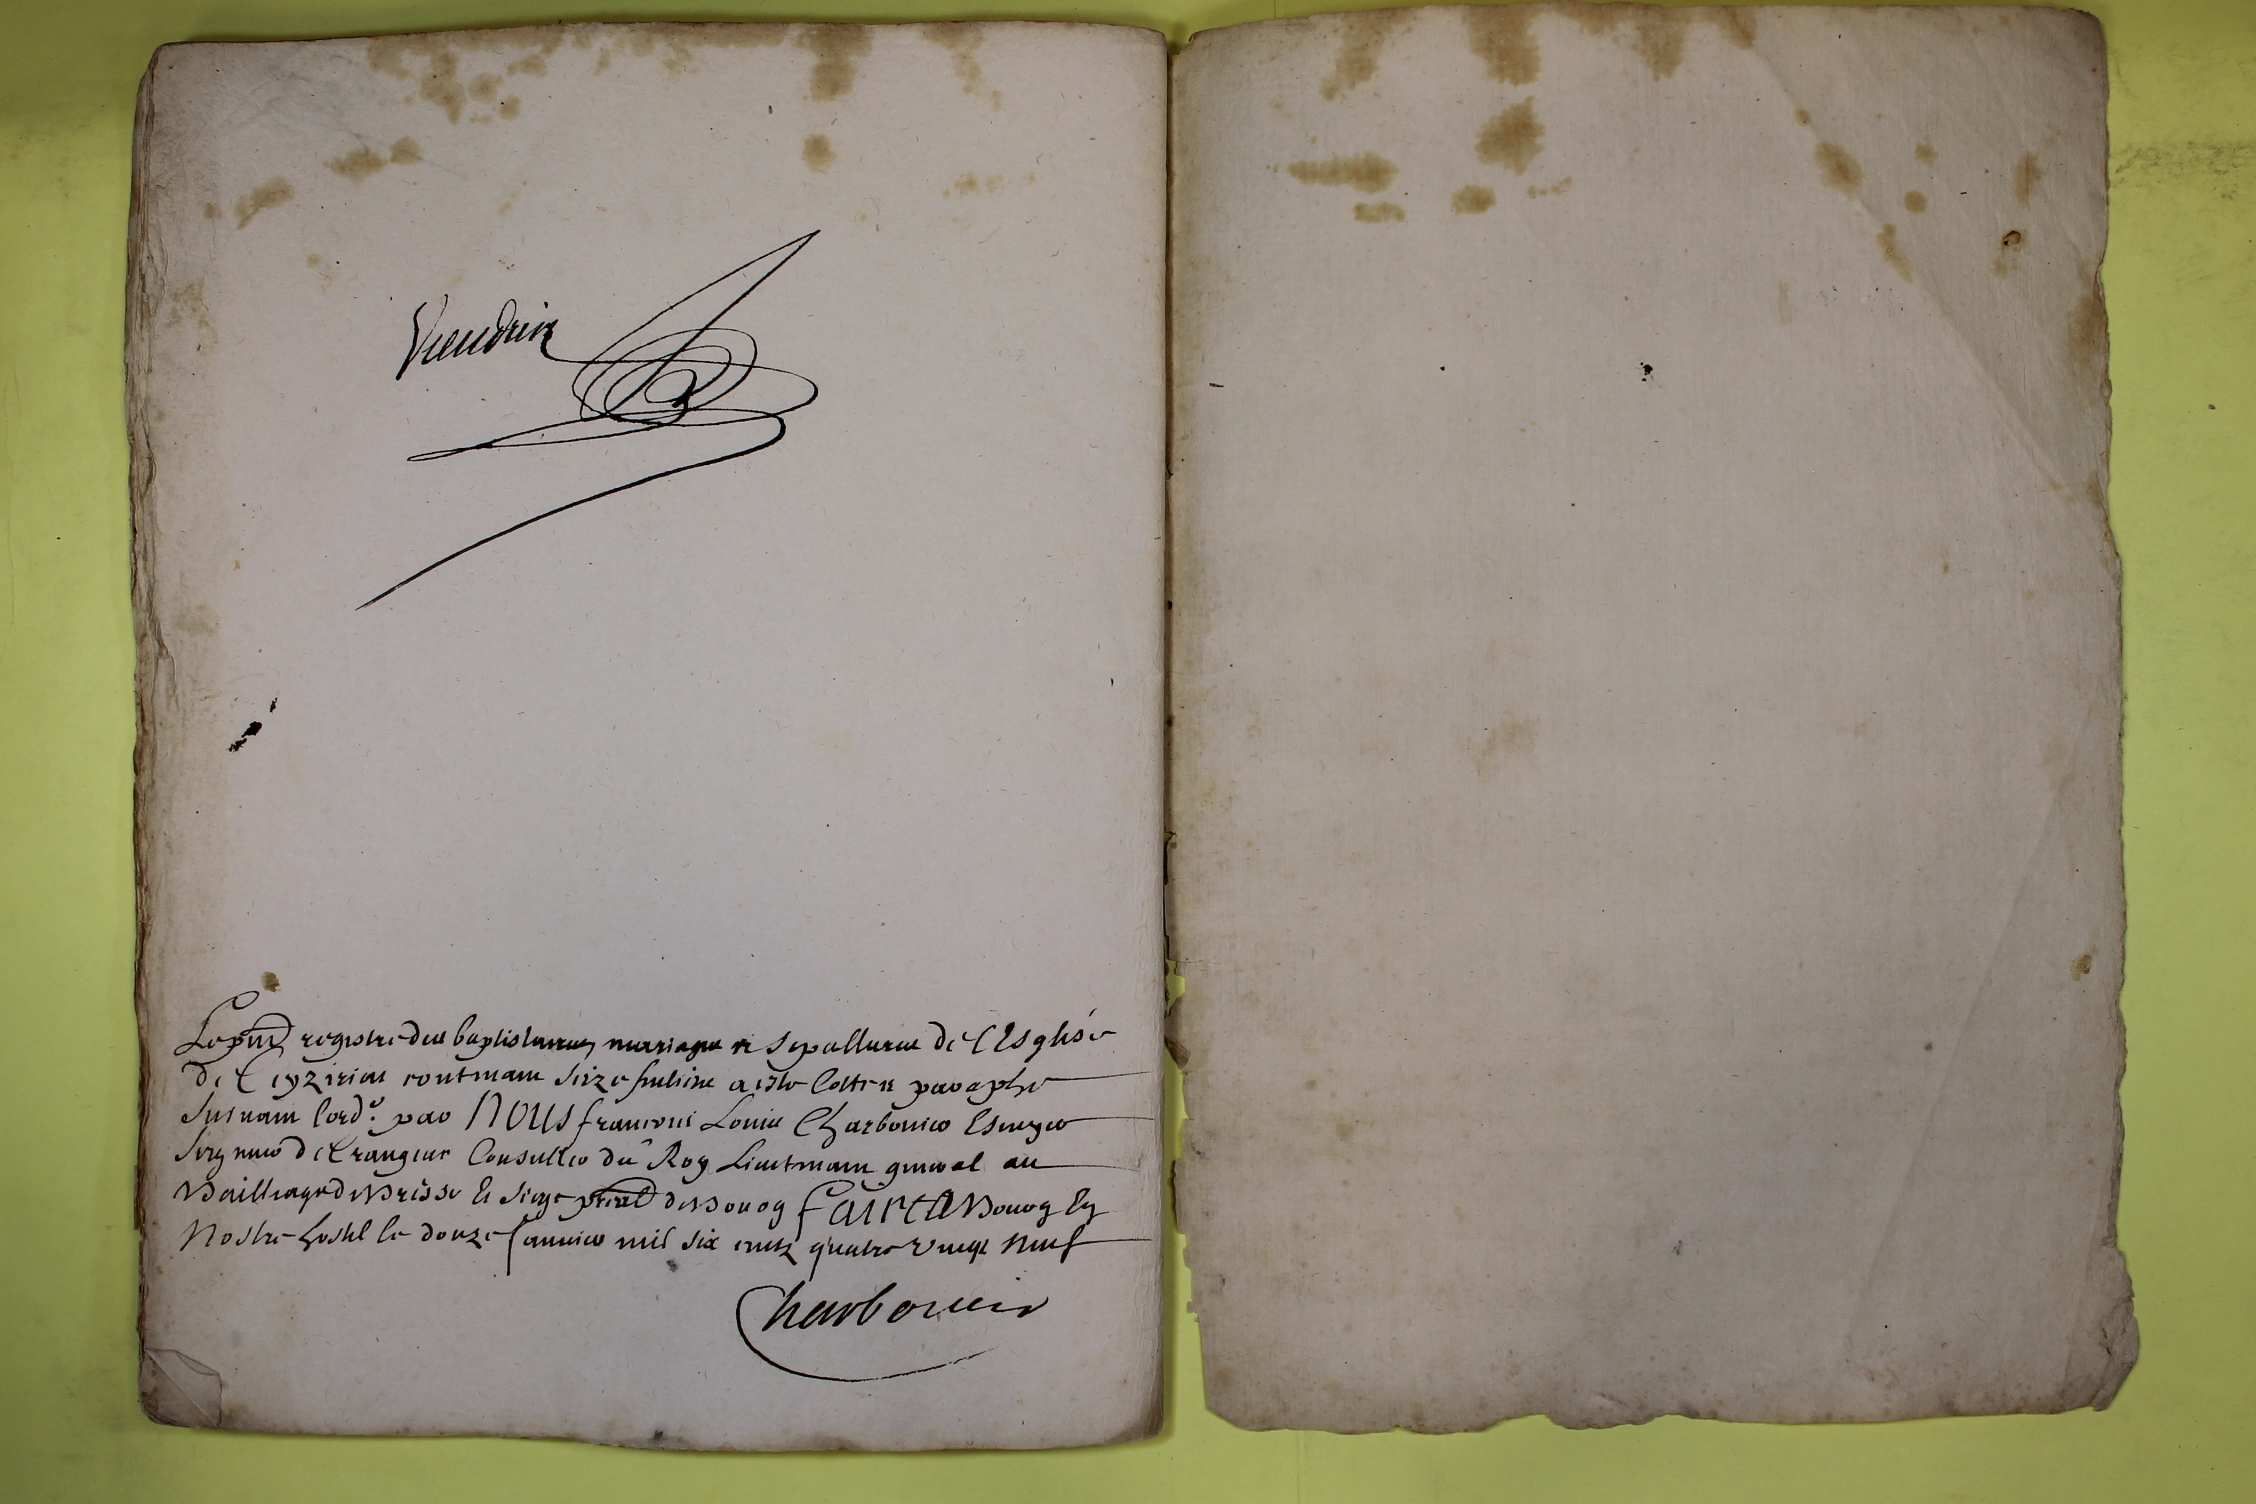 Le pnt registre des baptistaires mariages et sepultures de l'Esglise
de Ceyzeriat contenant seize feulliets a esté Cotté et paraphé
suivant l'ord.e par NOUS francois Louis Charbonier Escuyer
seigneur de Crangeat Conseiller du Roy Lieutenant general au
Bailliage de Bresse et siege presial de Bourg faict A Bourg En
Nostre hostel le douze Janvier mil six centz quatre vingt neuf
Charbonier